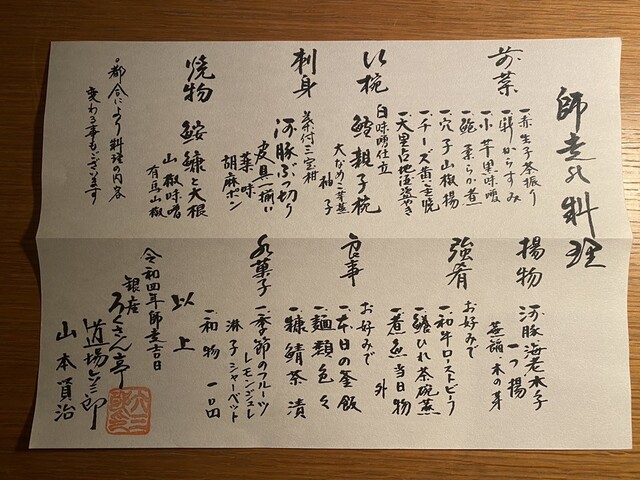 師走の料理
前菜
一、赤生子茶振り
一、新からすみ
一、小芋黒味噌
一、鮑柔らか煮
一、穴子山椒揚
一、チーズ黄金焼
椀
鱈親子椀
白味噌仕立
大なめこ
柚子
刺身
河豚ぶつ切り
皮具一揃い
薬味
胡麻ポン
焼物
鮟鱇と大根
山椒味噌
有馬山椒
○都合により料理の内容
変わる事もございます
揚物
河豚海老木子
一つ揚
木の芽
強肴
お好みで
一、和牛ローストビーフ
一、鱶ひれ茶碗蒸
一、煮魚当日物
外
食事
お好みで
一、本日の釜飯
一、麺類色々
一、糠鯖茶漬
水菓子
一、季節のフルーツ
レモンジュレ
淋子シャーベット
一、和物一口
以上
令和四年師走吉日
銀座
ろくさん亭
道場六三郎
山本員治